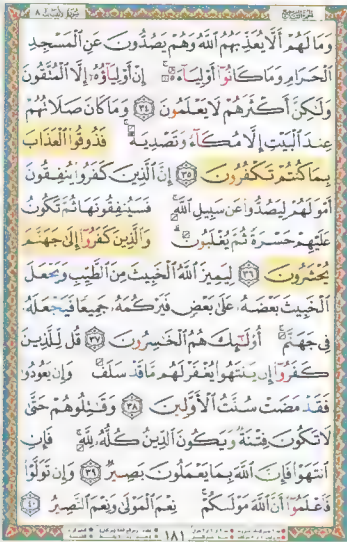 وَمَا لَهُمْ أَلَّا يُعَذِّبَهُمُ ٱللَّهُ وَهُمْ يَصُدُّونَ عَنِ ٱلْمَسْجِدِ
ٱلْحَرَامِ وَمَا كَانُوٓا۟ أَوْلِيَآءَهُۥٓ ۚ إِنْ أَوْلِيَآؤُهُۥٓ إِلَّا ٱلْمُتَّقُونَ
وَلَٰكِنَّ أَكْثَرَهُمْ لَا يَعْلَمُونَ ٣٤ وَمَا كَانَ صَلَاتُهُمْ
عِندَ ٱلْبَيْتِ إِلَّا مُكَآءً وَتَصْدِيَةً ۚ فَذُوقُوا۟ ٱلْعَذَابَ
بِمَا كُنتُمْ تَكْفُرُونَ ٣٥ إِنَّ ٱلَّذِينَ كَفَرُوا۟ يُنفِقُونَ
أَمْوَٰلَهُمْ لِيَصُدُّوا۟ عَن سَبِيلِ ٱللَّهِ ۚ فَسَيُنفِقُونَهَا ثُمَّ تَكُونُ
عَلَيْهِمْ حَسْرَةً ثُمَّ يُغْلَبُونَ ۗ وَٱلَّذِينَ كَفَرُوٓا۟ إِلَىٰ جَهَنَّمَ
يُحْشَرُونَ ٣٦ لِيَمِيزَ ٱللَّهُ ٱلْخَبِيثَ مِنَ ٱلطَّيِّبِ وَيَجْعَلَ
ٱلْخَبِيثَ بَعْضَهُۥ عَلَىٰ بَعْضٍ فَيَرْكُمَهُۥ جَمِيعًا فَيَجْعَلَهُۥ
فِى جَهَنَّمَ ۚ أُو۟لَٰٓئِكَ هُمُ ٱلْخَٰسِرُونَ ٣٧ قُل لِّلَّذِينَ
كَفَرُوٓا۟ إِن يَنتَهُوا۟ يُغْفَرْ لَهُم مَّا قَدْ سَلَفَ وَإِن يَعُودُوا۟
فَقَدْ مَضَتْ سُنَّتُ ٱلْأَوَّلِينَ ٣٨ وَقَٰتِلُوهُمْ حَتَّىٰ
لَا تَكُونَ فِتْنَةٌ وَيَكُونَ ٱلدِّينُ كُلُّهُۥ لِلَّهِ ۚ فَإِنِ
ٱنتَهَوْا۟ فَإِنَّ ٱللَّهَ بِمَا يَعْمَلُونَ بَصِيرٌ ٣٩ وَإِن تَوَلَّوْا۟
فَٱعْلَمُوٓا۟ أَنَّ ٱللَّهَ مَوْلَىٰكُمْ ۚ نِعْمَ ٱلْمَوْلَىٰ وَنِعْمَ ٱلنَّصِيرُ ٤٠
١٨١